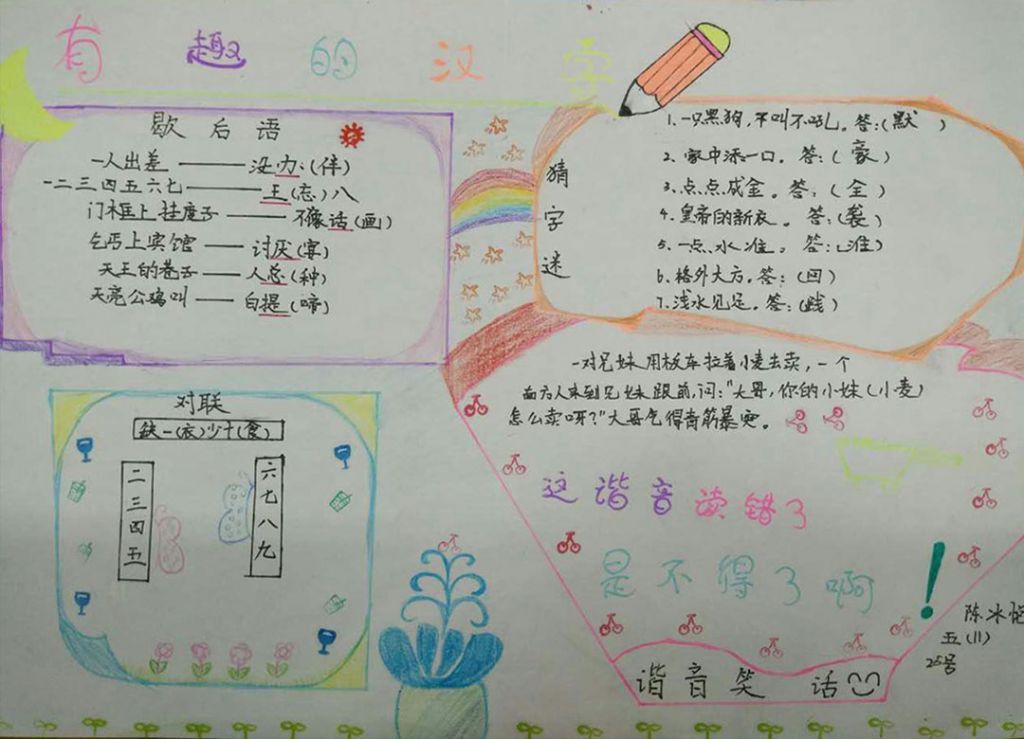 有趣的汉字
歇后语
一人出差——没办(伴)
一二三四五六七——王(忘)八
门框上挂席子——不像话(画)
乞丐上宾馆——讨厌(宴)
天王的巷子——人总(种)
天亮公鸡叫——白提(啼)
猜字迷
1.一只黑狗,不叫不吼。答:(默)
2.家中添一口。答:(豪)
3.点点成金。答:(全)
4.皇帝的新衣。答:(袭)
5.一点水准。答:(准)
6.格外大方。答:(回)
7.浅水见足。答:(践)
对联
缺一(衣)少十(食)
二三四五
六七八九
一对兄妹用板车拉着小麦去卖,一个
南方人来到兄妹跟前,问:"大哥,你的小妹(小麦)
怎么卖呀?"大哥气得青筋暴突。
这谐音读错了
是不得了啊!
谐音笑话
陈冰
五(11)
25号